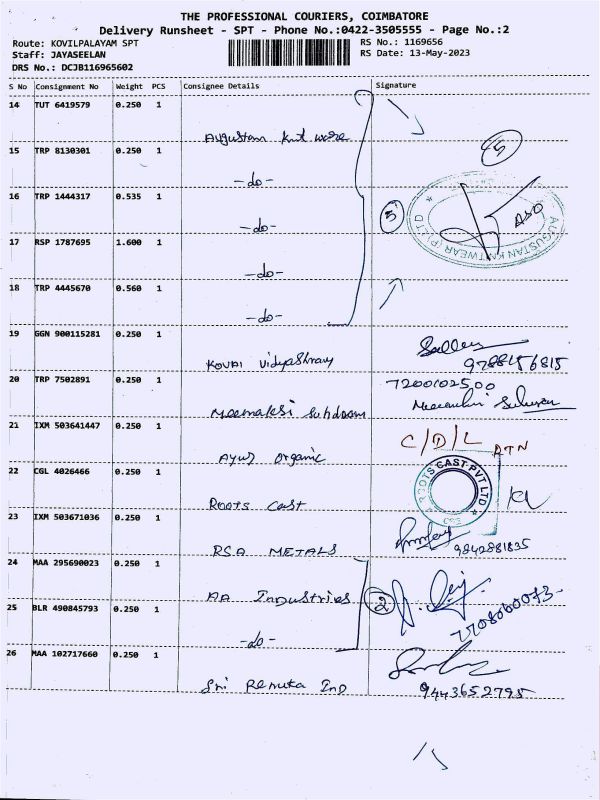 THE PROFESSIONAL COURIERS, COIMBATORE
Delivery Runsheet - SPT - Phone No.:0422-3505555 - Page No.:2
Route: KOVILPALAYAM SPT
RS No.: 1169656
Staff: JAYASEELAN
RS Date: 13-May-2023
DRS No.: DCJB116965602
S No Consignment No Weight PCS Consignee Details Signature
14 TUT 6419579 0.250 1
Augustan knit ware
15 TRP 8130301 0.250 1
5
-do-
16 TRP 1444317 0.535 1
5
ASO
AUGUSTAN KNITWEAR (P) LTD
-do-
17 RSP 1787695 1.600 1
-do-
18 TRP 4445670 0.560 1
-do-
19 GGN 900115281 0.250 1
Kovai Vidyashram
9788156815
20 TRP 7502891 0.250 1
7200102500
21 IXM 503641447 0.250 1
C/D/L RTN
Ayur organic
22 CGL 4026466 0.250 1
ROOTS CAST PVT LTD
Roots Cast
23 IXM 503671036 0.250 1
RSA METALS
9842881835
24 MAA 295690023 0.250 1
AA Industries
2
25 BLR 490845793 0.250 1
-do-
26 MAA 102717660 0.250 1
Sri Renuka Ind
9443652795